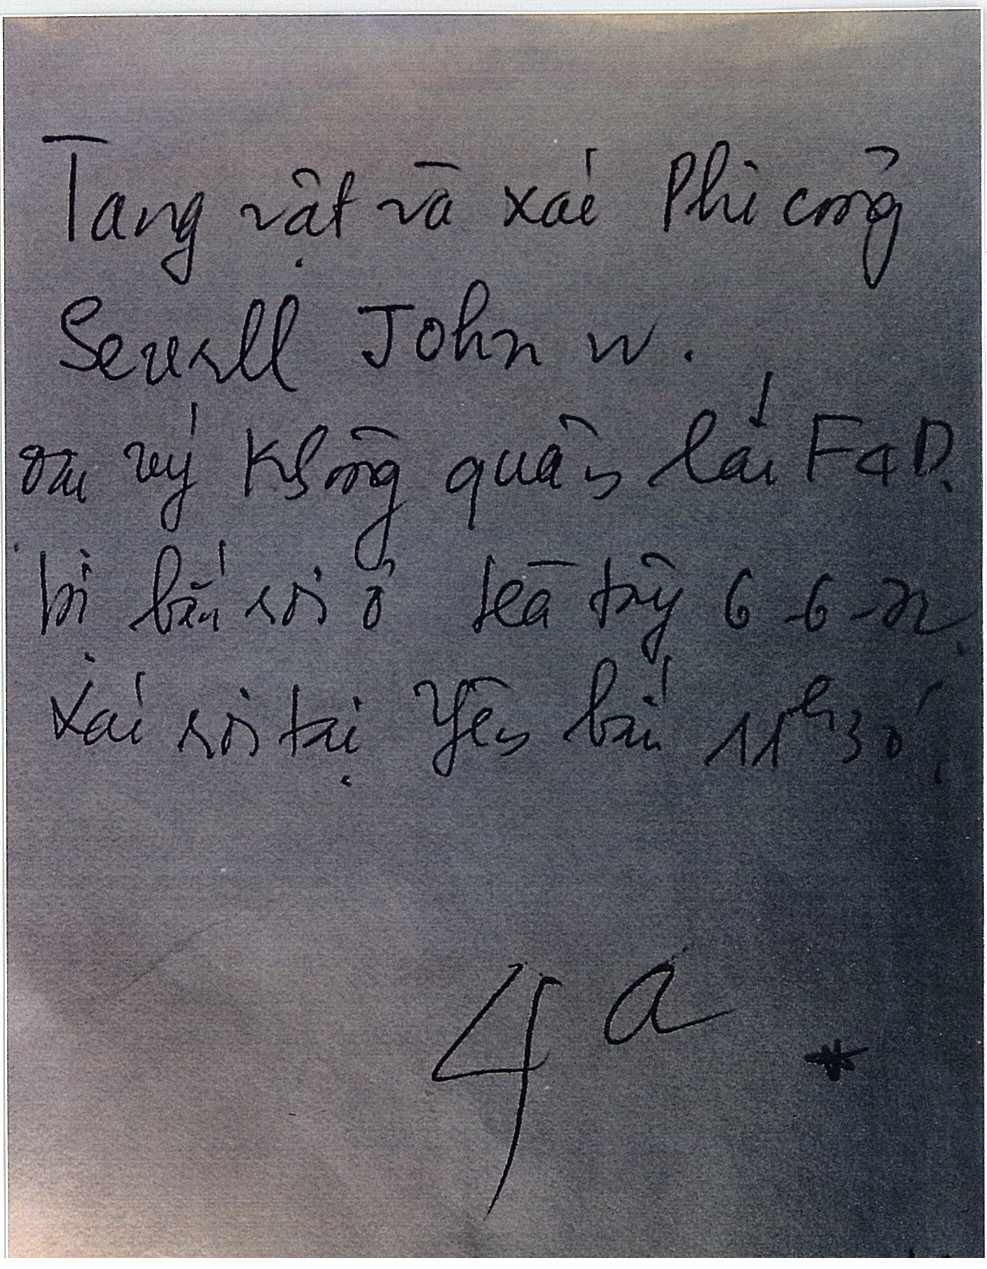 Tang vật và xác Phi công
Sewell John W.
đại uý Không quân lái F4D.
bị bắn rơi ở 6-6-72
xác rơi tại Yên bái 11h30'
4a *